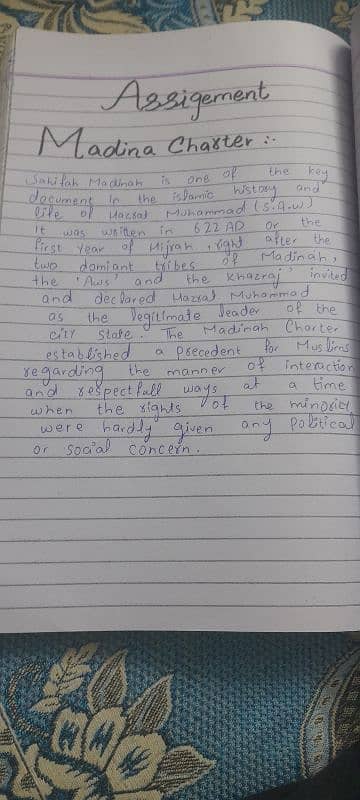 Assigement
Madina Charter :-
Sahifah Madinah is one of the key
document in the islamic history and
life of Hazrat Muhammad (s.a.w)
it was written in 622 AD or the
first year of Hijrah, right after the
two domiant tribes of Madinah,
the 'Aws' and the Khazraj' invited
and declared Hazrat Muhammad
as the legitimate leader of the
city state. The Madinah Charter
established a Precedent for Muslims
regarding the manner of interaction
and respectfull ways at a time
when the rights of the minority
were hardly given any Political
or social concern.